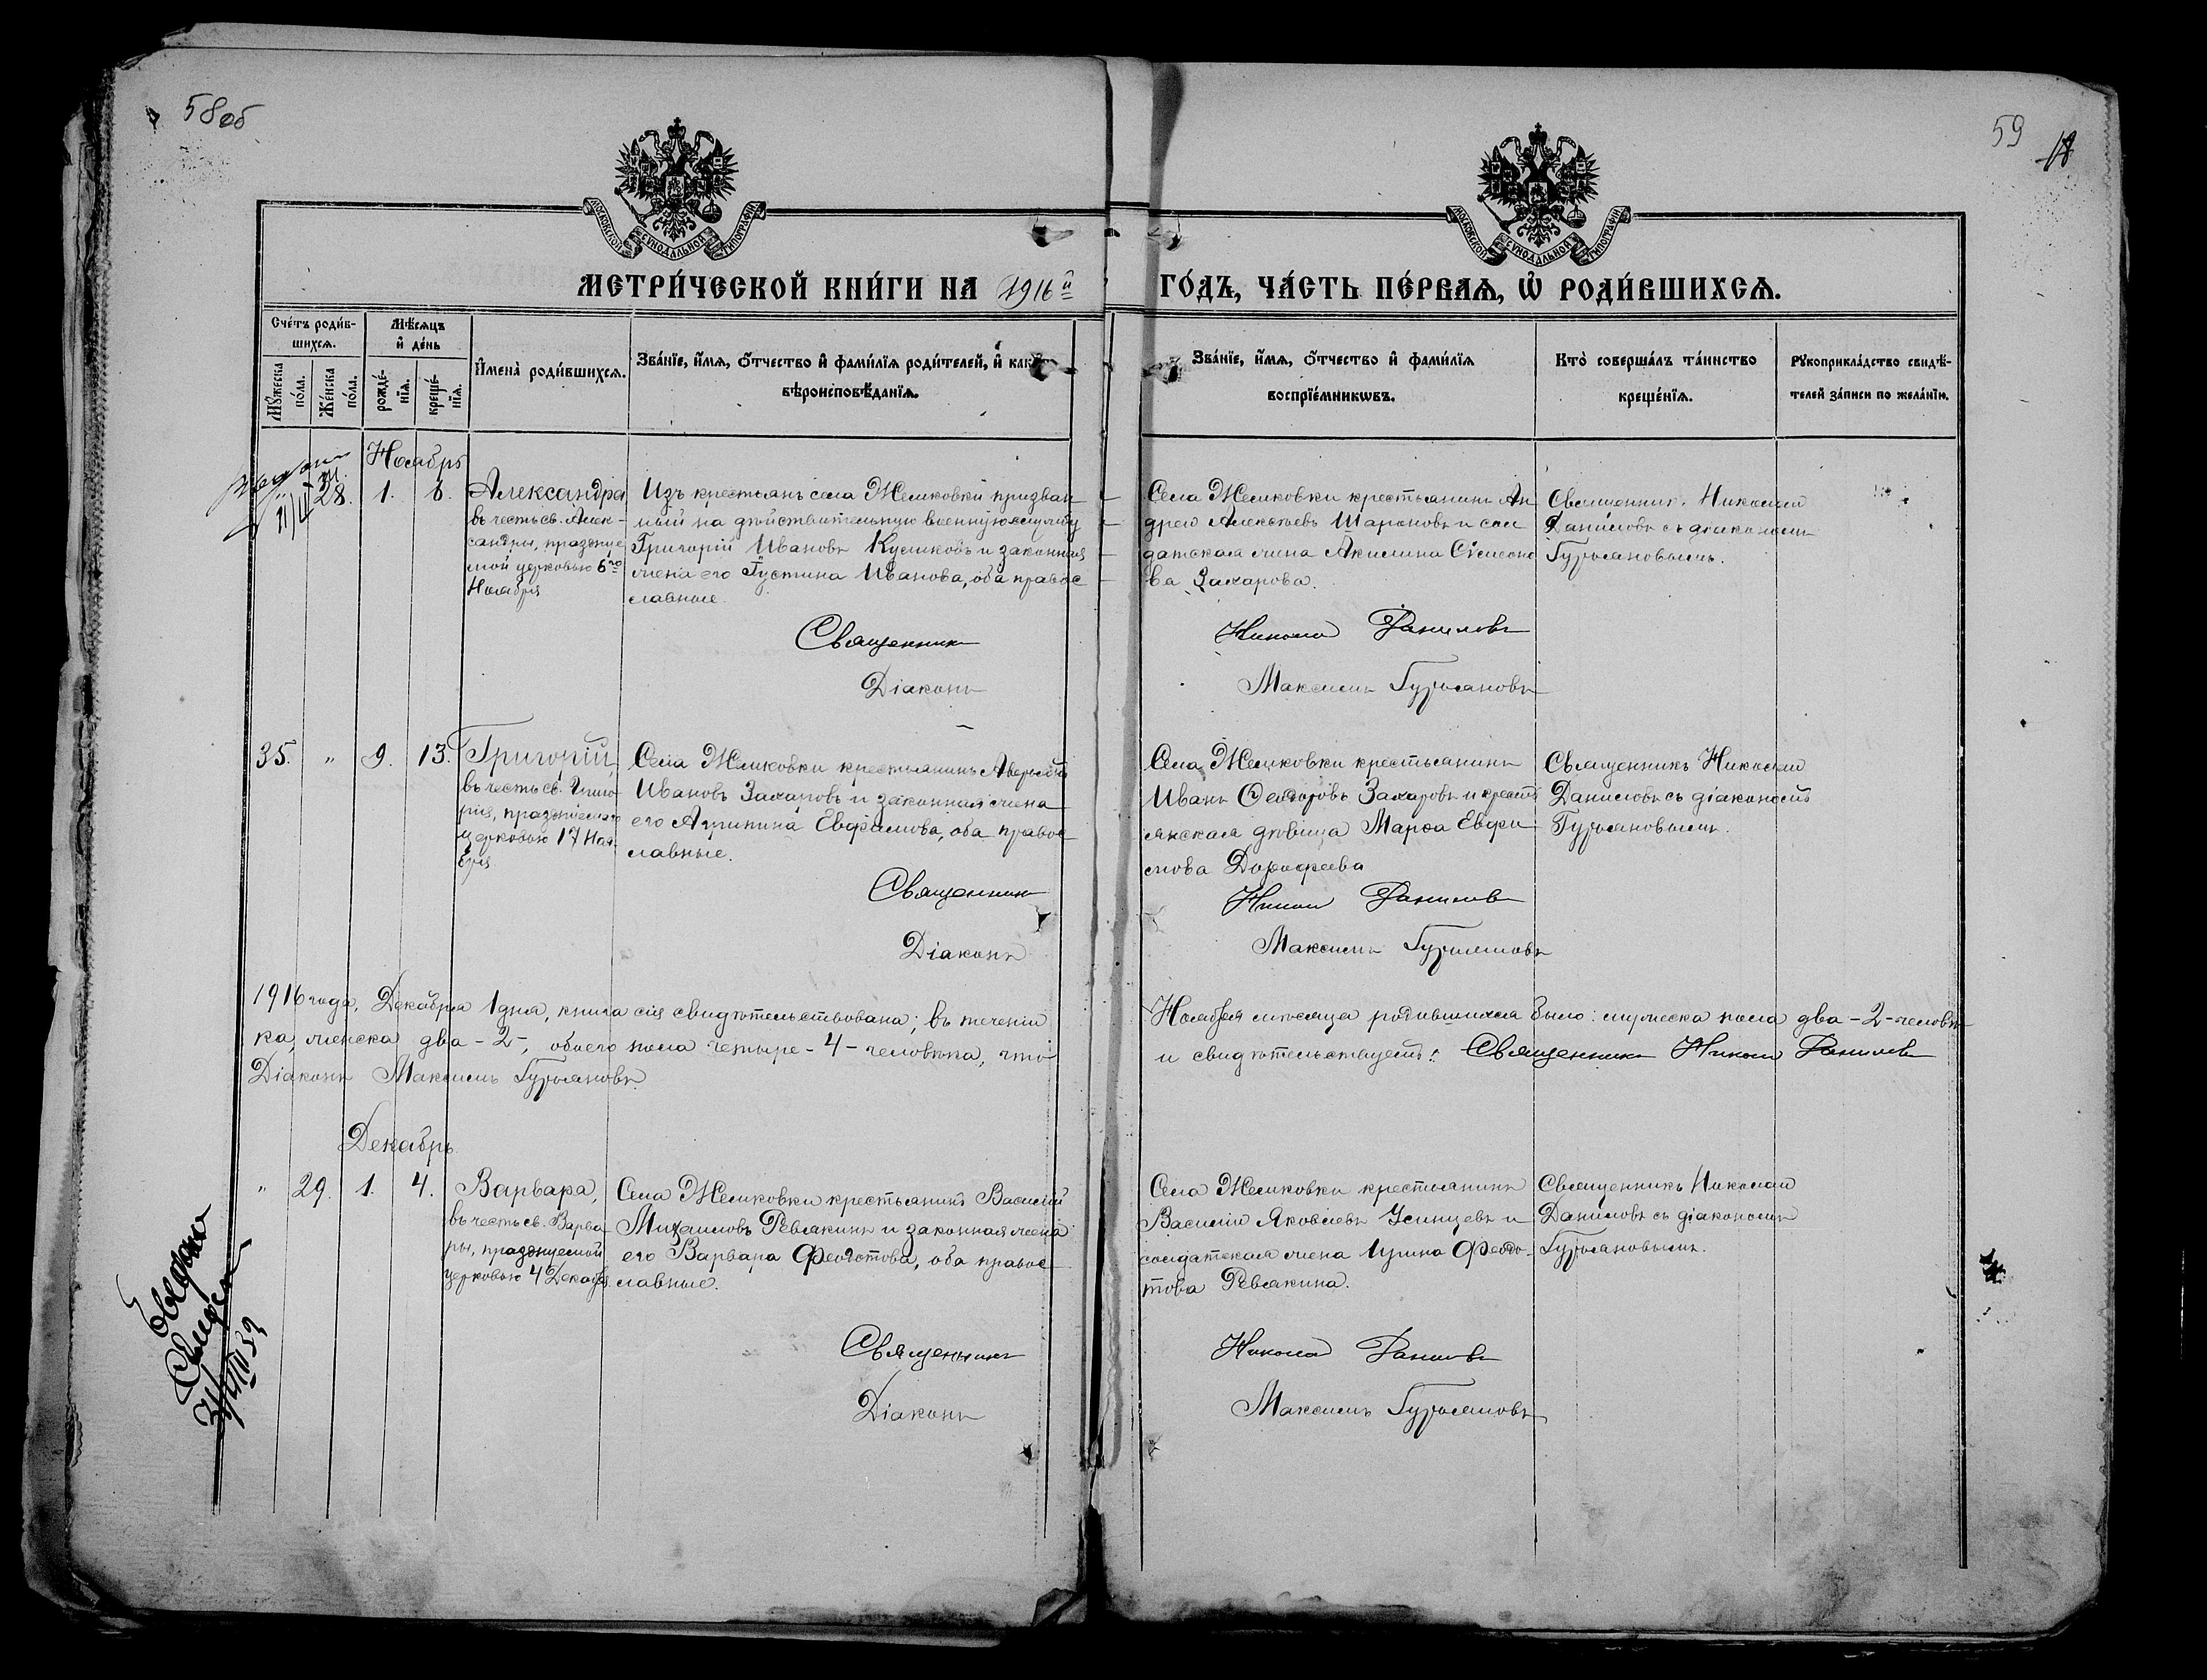 58 об
59
МОСКОВСКОЙ СУНОДАЛЬНОЙ ТИПОГРАФІИ
МОСКОВСКОЙ СУНОДАЛЬНОЙ ТИПОГРАФІИ
МЕТРИ́ЧЕСКОЙ КНИ́ГИ НА 1916й ГО́ДЪ, ЧА́СТЬ ПЕ́РВАѦ, Ѡ҆ РОДИ́ВШИХСѦ.
Сче́тъ роди́в-
шихсѧ.
Мѣ́сѧцъ
и҆ де́нь
Мꙋ́жеска
по́ла.
Же́нска
по́ла.
рожде́-
нїѧ.
креще́-
нїѧ.
И҆мена̀ роди́вшихсѧ.
Зва́нїе, и҆́мѧ, ѻ҆́тчество и҆ фами́лїѧ роди́телей, и҆
вѣроисповѣ́данїѧ.
Зва́нїе, и҆́мѧ, ѻ҆́тчество и҆ фами́лїѧ
воспрїе́мникѡвъ.
Кто̀ соверша́лъ та́инство
креще́нїѧ.
Рꙋкоприкла́дство свидѣ́-
телей за́писи по жела́нїю.
Ноябрь
28. 1. 6.
Александра
въ честь св. Алек-
сандры, праздну
мой церковью 6го
Ноября
Изъ крестьянъ села Жемковки призван
ный на дѣйствительную военную службу
Григорій Ивановъ Куликовъ и законная
жена его Іустина Иванова, оба правос
славные.
Села Жемковки крестьянинъ Ан
дрей Алексѣевъ Шароновъ и сол
датская жена Акилина Симеоно
ва Захарова.
Священник. Николай
Даниловъ съ діакономъ
Гурьяновымъ.
Священникъ Николай Даниловъ
Діаконъ Максимъ Гурьяновъ
35. " 9. 13.
Григорій,
въ честь св. Григо-
рія, празднуемаго
церковью 17 Ноя-
бря
Села Жемковки крестьянинъ
Ивановъ Захаровъ и законная жена
его Агрипина Евфимова, оба правос
славные.
Села Жемковки крестьянинъ
Иванъ Ѳедоровъ Захаровъ и кресть
янская дѣвица Марѳа Евфи
мова Дорофеева
Священникъ Николай
Даниловъ съ діакономъ
Гурьяновымъ.
Священникъ Николай Даниловъ
Діаконъ Максимъ Гурьяновъ
1916 года, Декабря 1 дня, книга сія свидѣтельствована; въ теченіи Ноября мѣсяца родившихся было: мужеска пола два -2- человѣ
ка, женска два -2-, обоего пола четыре -4- человѣка, что и свидѣтельствуемъ: Священникъ Николай Даниловъ
Діаконъ Максимъ Гурьяновъ
Декабрь
" 29. 1. 4.
Варвара,
въ честь св. Варва-
ры, празднуемой
церковью 4 Декабря
Села Жемковки крестьянинъ Василій
Михаиловъ Ревлякинъ и законная жена
его Варвара Феодотова, оба правос
славные.
Села Жемковки крестьянинъ
Василій Яковлевъ и
солдатская жена Ирина Феодо-
това Ревлякина.
Священникъ Николай
Даниловъ съ діакономъ
Гурьяновымъ.
Священникъ Николай Даниловъ
Діаконъ Максимъ Гурьяновъ